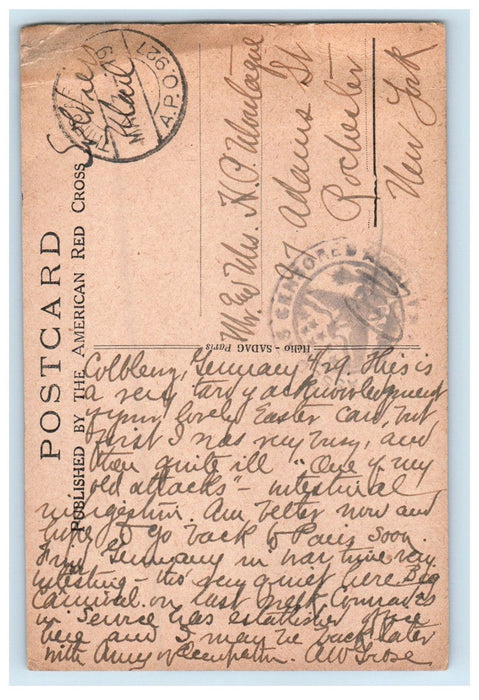 POSTCARD
PUBLISHED BY THE AMERICAN RED CROSS
Soldier
Mail
A.P.O. 927
MAY
19
Mr & Mrs. H. P. Montague
97 Adams St
Rochester
New York
CENSORED
Hélio - SADAG Paris
Colblenz, Germany 4/29. This is
a very tardy acknowledgment
of your lovely Easter card, but
first I was very busy, and
then quite ill "One of my
old attacks" - intestinal
indigestion. Am better now and
hope to go back to Paris soon.
Find Germany in war time very
intersting - tho' very quiet here. Big
Carnival on last week. Comrades
in Service has established office
here and I may be back later
with Army of Occupation. AW Grose